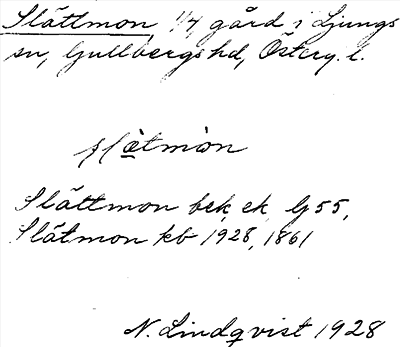 Slättmon 1/4 gård i Ljungs
sn, Gullbergs hd, Österg. l.
slǣ̀tmòn
Slättmon bek ek G 55,
Slätmon kb 1928, 1861
N. Lindqvist 1928